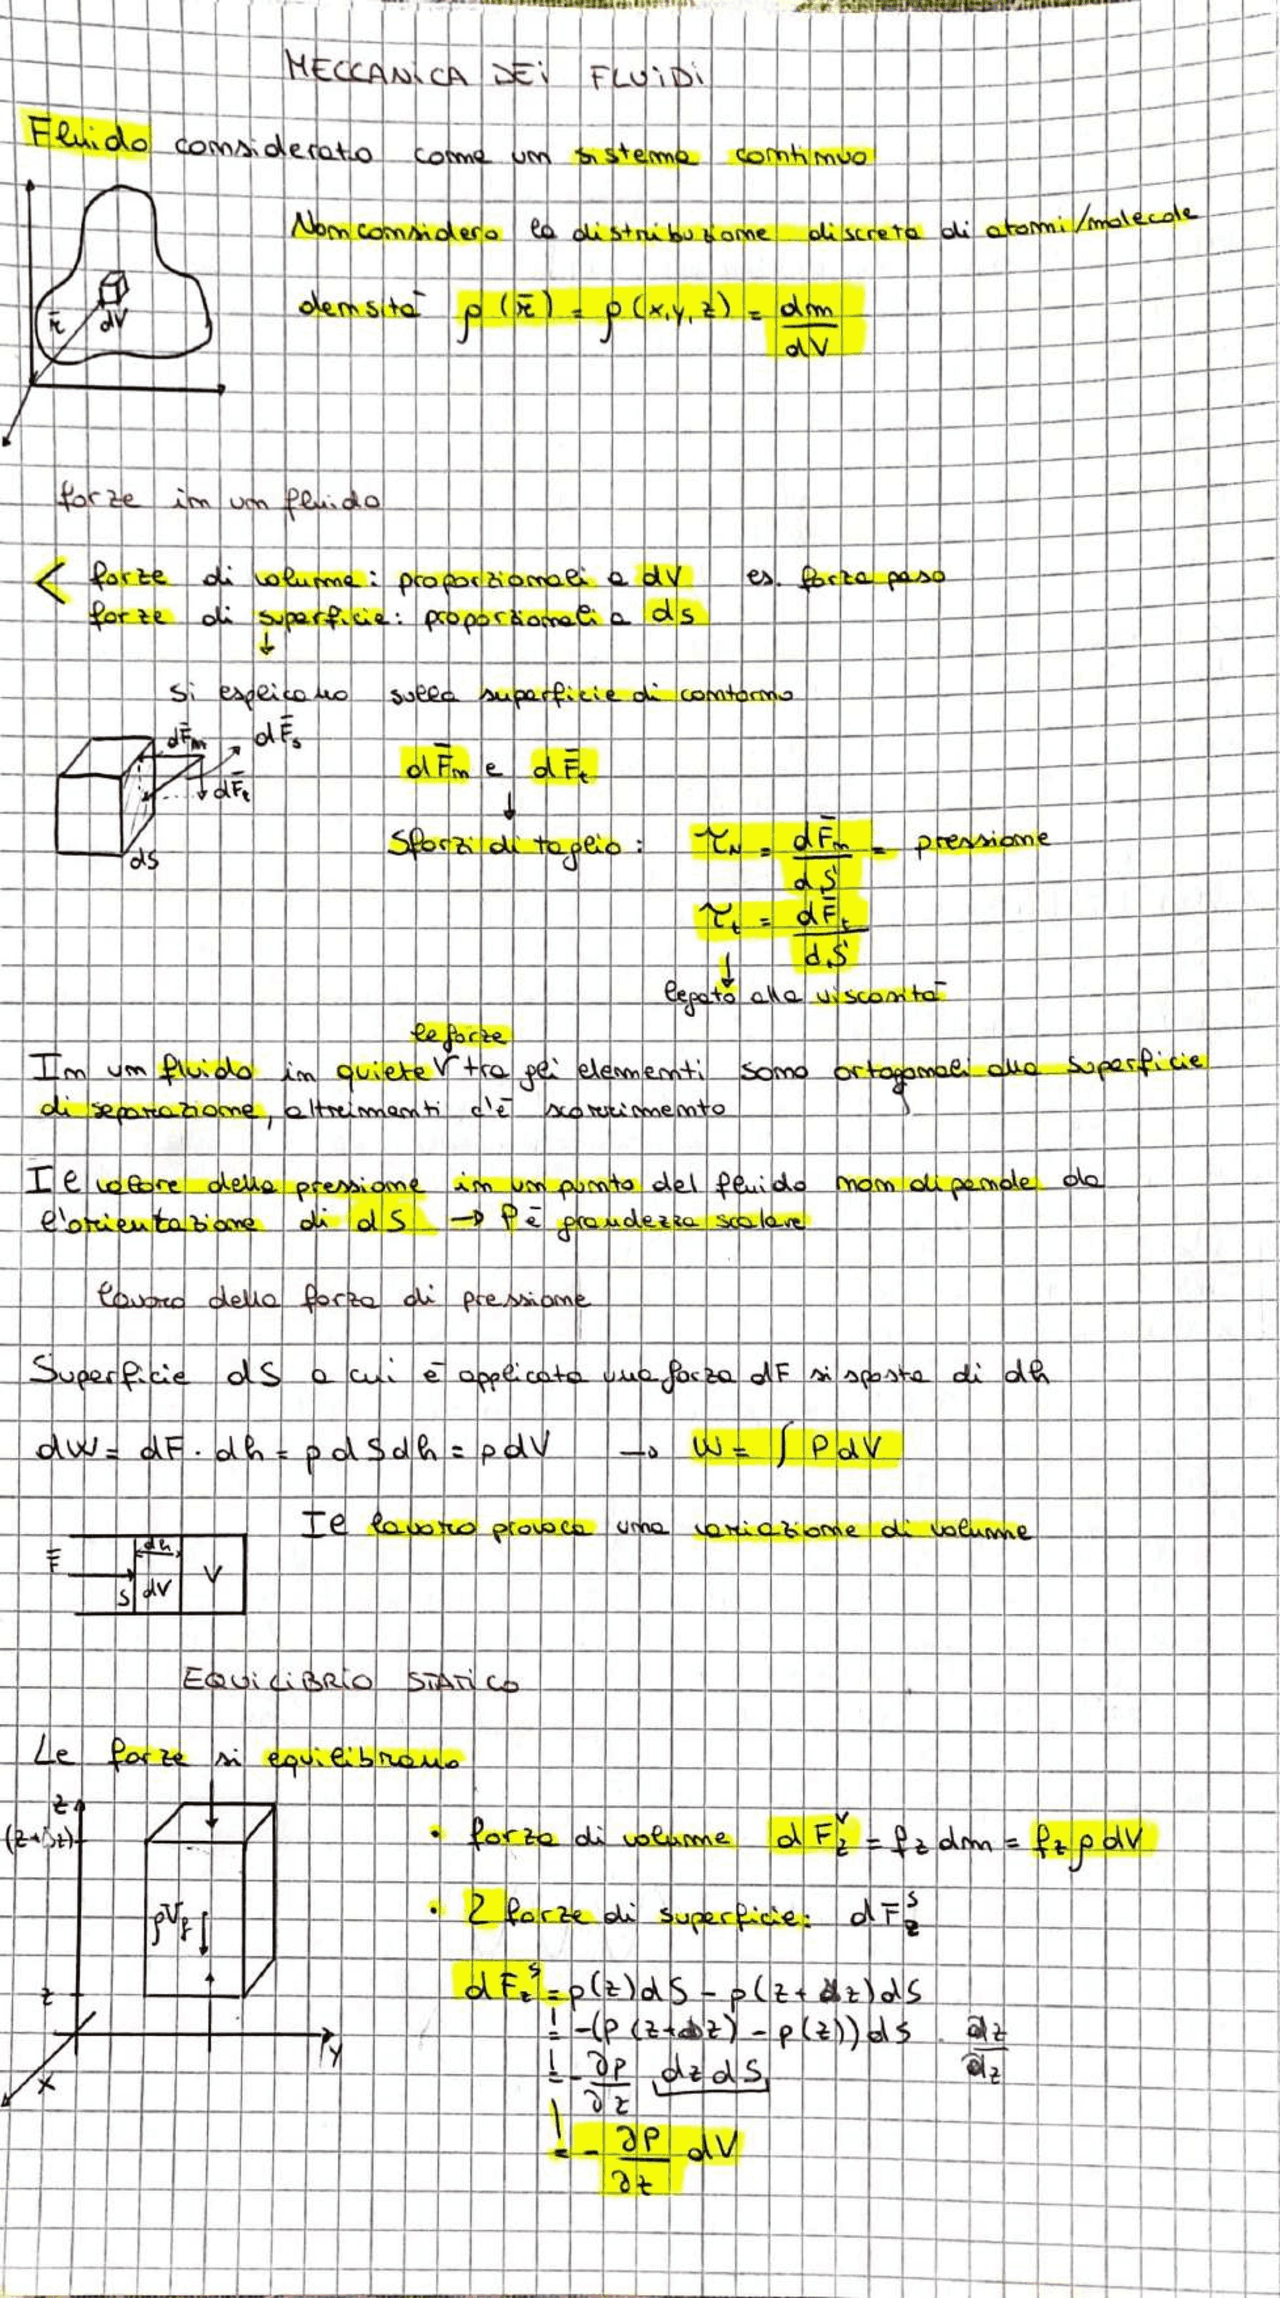 MECCANICA DEI FLUIDI
Fluido considerato come un sistema continuo
Non considero la distribuzione discreta di atomi/molecole
densità ρ(r̄) = ρ(x,y,z) = dm/dV
r̄
dV
forze in un fluido
< forze di volume: proporzionali a dV es. forza peso
forze di superficie: proporzionali a ds
↓
si esplicano sulla superficie di contorno
dF̄n dF̄s
dF̄t
dS
dF̄n e dF̄t
↓
Sforzi di taglio: τN = dF̄n/dS = pressione
τt = dF̄t/dS
↓
legato alla viscosità
le forze
In un fluido in quiete V tra gli elementi sono ortogonali alla superficie
di separazione, altrimenti c'è scorrimento
Il valore della pressione in un punto del fluido non dipende da
l'orientazione di dS → P è grandezza scalare
lavoro della forza di pressione
Superficie dS a cui è applicata una forza dF si sposta di dh
dW = dF · dh = p dS dh = p dV → W = ∫ P dV
Il lavoro provoca una variazione di volume
F̄ dh
S dV V
EQUILIBRIO STATICO
Le forze si equilibrano
z
(z+dz)
• forza di volume dFzV = fz dm = fz ρ dV
• 2 forze di superficie: dFzS
ρVf
z
dFzS = p(z)dS - p(z+dz)dS
= -(p(z+dz) - p(z))dS · dz/dz
= - ∂p/∂z dz dS
= - ∂P/∂z dV
y
x